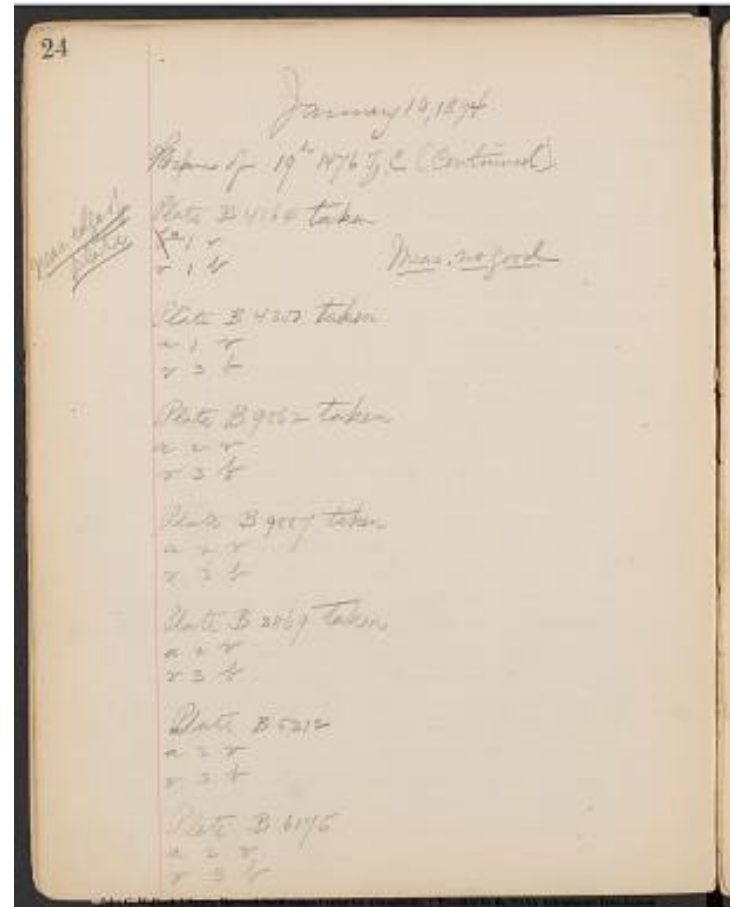 24
January 19, 1894
of 19h 1476 Z, C (Continued)
near edge of
plate
Plate B taken
a 1 v
v 1 b
Meas. no good
Plate B taken
a 1 v
v 3 b
Plate B 9062 taken
a 2 v
v 3 b
Plate B 9007 taken
a 2 v
v 3 b
Plate B 3069 taken
a 2 v
v 3 b
Plate B 5212
a 2 v
v 3 b
Plate B 6175
a 2 v
v 3 b